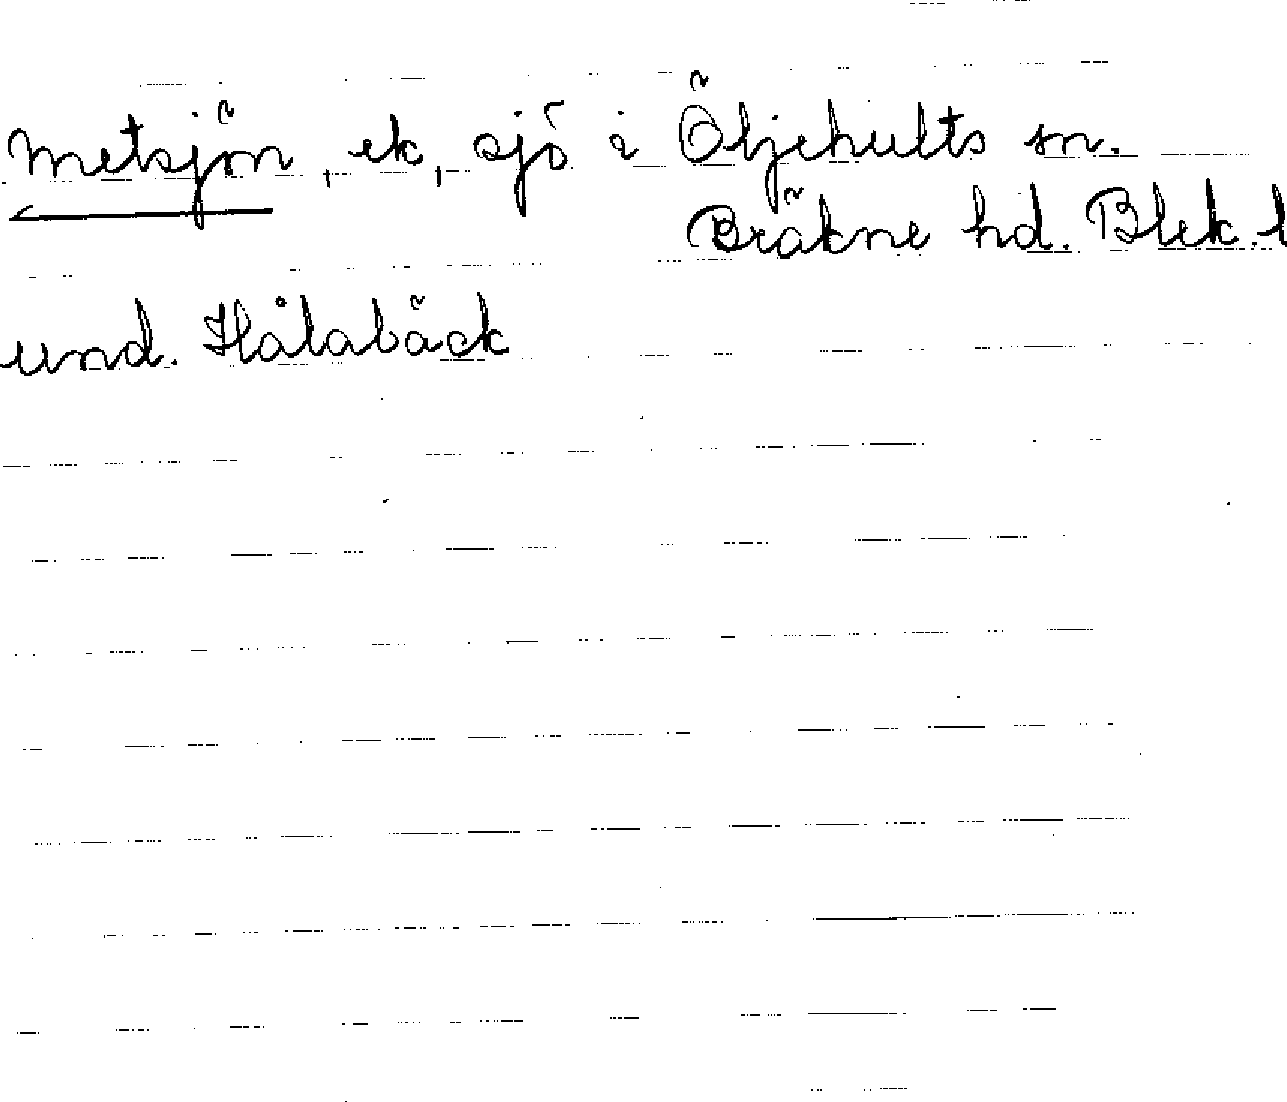 Metsjön, ek, sjö i Öljehults sn.
Bräkne hd. Blek. l
und. Hålabäck